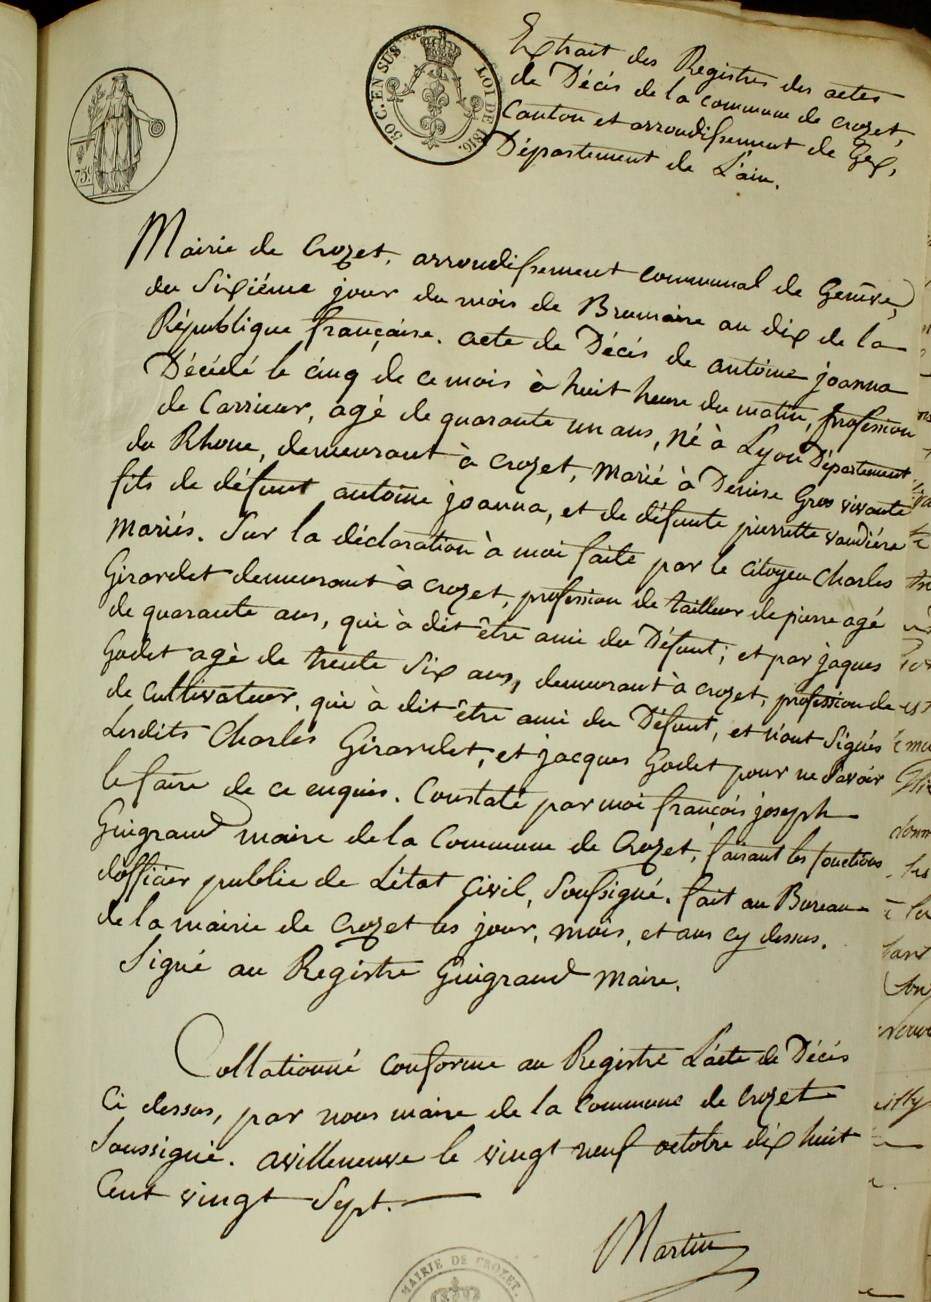 75c.
50 C. EN SUS
LOI DE 1816.
Extrait des Registres des actes
de Décés de la commune de crozet,
Canton et arrondissement de Gex,
Département de L'ain.
Mairie de crozet, arrondissement communal de Genêve,
du Sixiéme jour du mois de Brumaire an dix de la
République française. acte de Décés de antoine joanna
Décédé le cinq de ce mois à huit heure du matin, profession
de Carrieur, agé de quarante un ans, né à Lyon Département
du Rhone, demeurant à crozet, Marié à Denise Gros vivante
fils de défunt antoine joanna, et de défunte pierrette vaudiére
mariés. Sur la déclaration à moi faite par le citoyen Charles
Girardet demeurant à crozet, profession de tailleur de pierre agé
de quarante ans, qui à dit être ami du Défunt; et par jaques
Godet agé de trente Six ans, demeurant à crozet, profession de
de cultivateur, qui à dit être ami du Défunt, et n'ont Signés
Lesdits Charles Girardet, et jacques Godet pour ne Savoir
le faire de ce enquis. Constaté par moi françois joseph
Guigrand maire de la Commune de Crozet, faisant les fonctions
d'officier publie de L'état Civil, Soussigné. fait au Bureau
de la mairie de Crozet les jour, mois, et ans cy dessus.
Signé au Registre Guigrand Maire.
Collationné conforme au Registre L'acte de Décés
Ci dessus, par nous maire de la commune de crozet
Soussigné. avilleneuve le vingt neuf octobre dix huit
Cent vingt Sept.
Martin
MAIRIE DE CROZET.